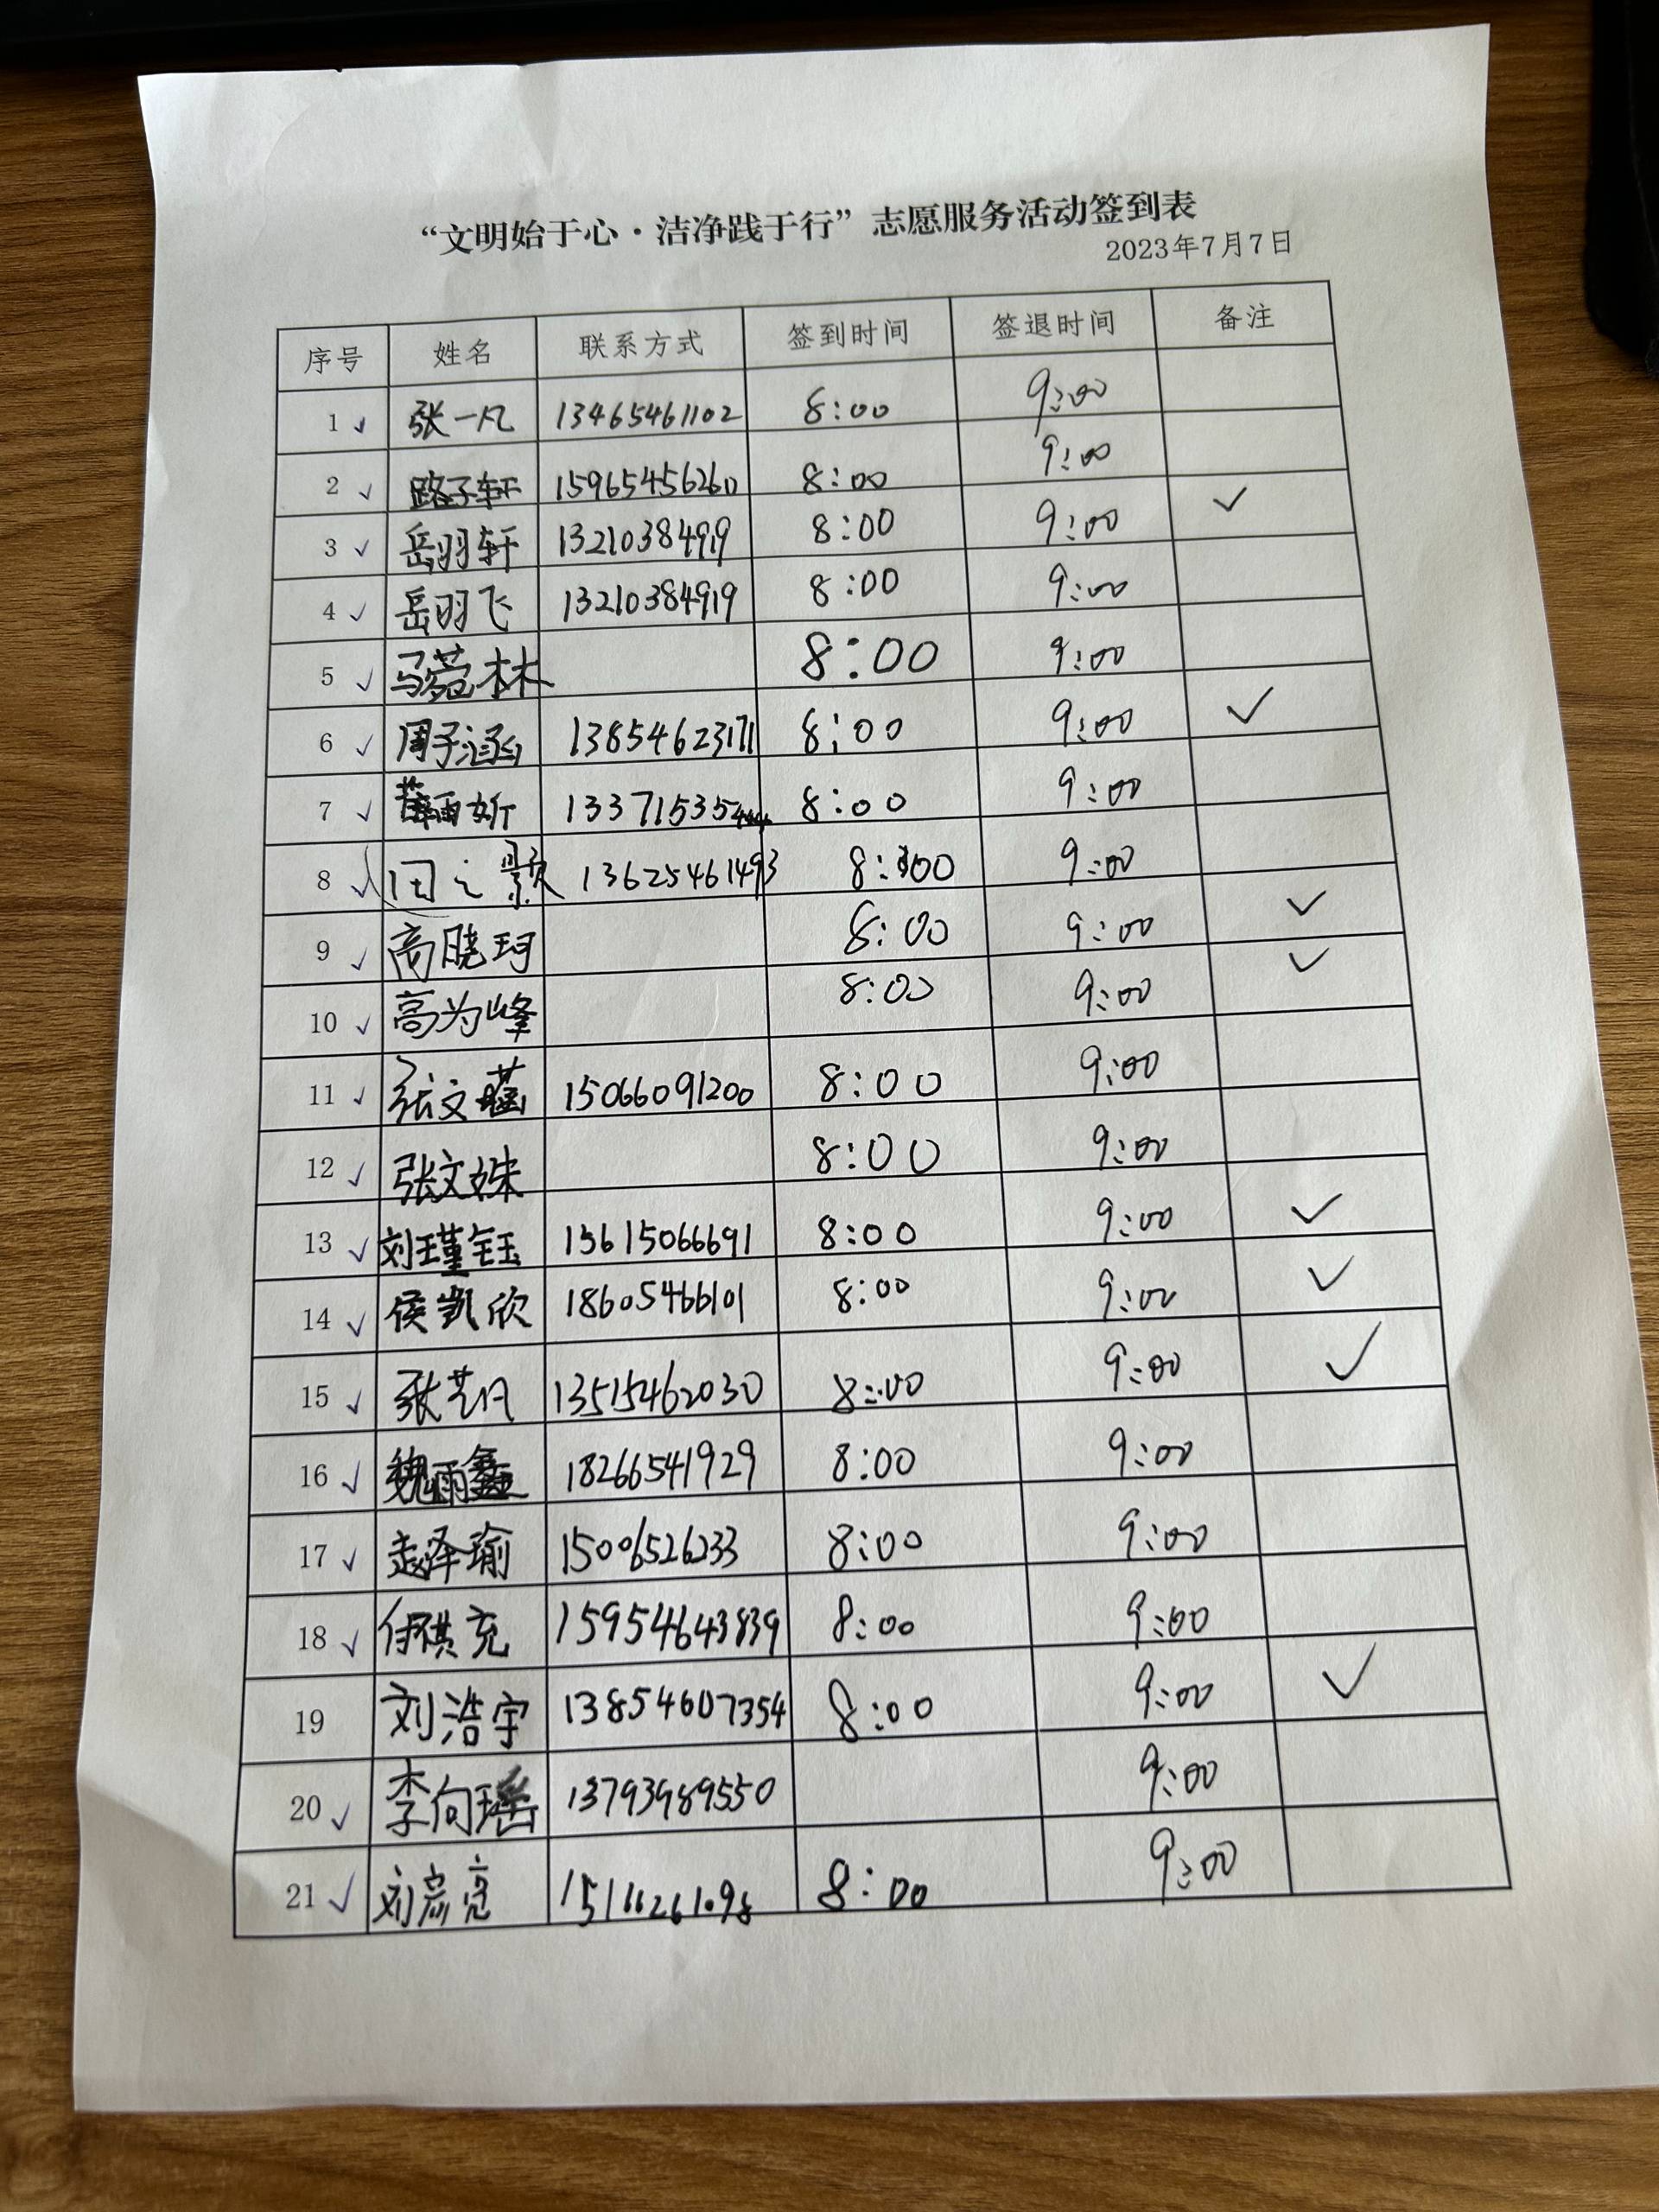 “文明始于心·洁净践于行”志愿服务活动签到表
2023年7月7日
序号 姓名 联系方式 签到时间 签退时间 备注
1 ✓ 张一凡 13465461102 8:00 9:00
2 ✓ 路子轩 15965456260 8:00 9:00
3 ✓ 岳羽轩 13210384919 8:00 9:00 ✓
4 ✓ 岳羽飞 13210384919 8:00 9:00
5 ✓ 马 林 8:00 9:00
6 ✓ 周子涵 13854623171 8:00 9:00 ✓
7 ✓ 雨妡 13371535444 8:00 9:00
8 ✓ 田之景 13625461493 8:00 9:00
9 ✓ 高晓珂 8:00 9:00 ✓
10 ✓ 高为峰 8:00 9:00 ✓
11 ✓ 张文 15066091200 8:00 9:00
12 ✓ 张文姝 8:00 9:00
13 ✓ 刘瑾钰 13615066691 8:00 9:00 ✓
14 ✓ 侯凯欣 18605466101 8:00 9:00 ✓
15 ✓ 张艺凡 13515462030 8:00 9:00 ✓
16 ✓ 魏雨鑫 18266541929 8:00 9:00
17 ✓ 赵泽瑜 15006526233 8:00 9:00
18 ✓ 祺充 15954643839 8:00 9:00
19 刘浩宇 13854607354 8:00 9:00 ✓
20 ✓ 李向瑶 13793989550 9:00
21 ✓ 刘 亮 15166261098 8:00 9:00